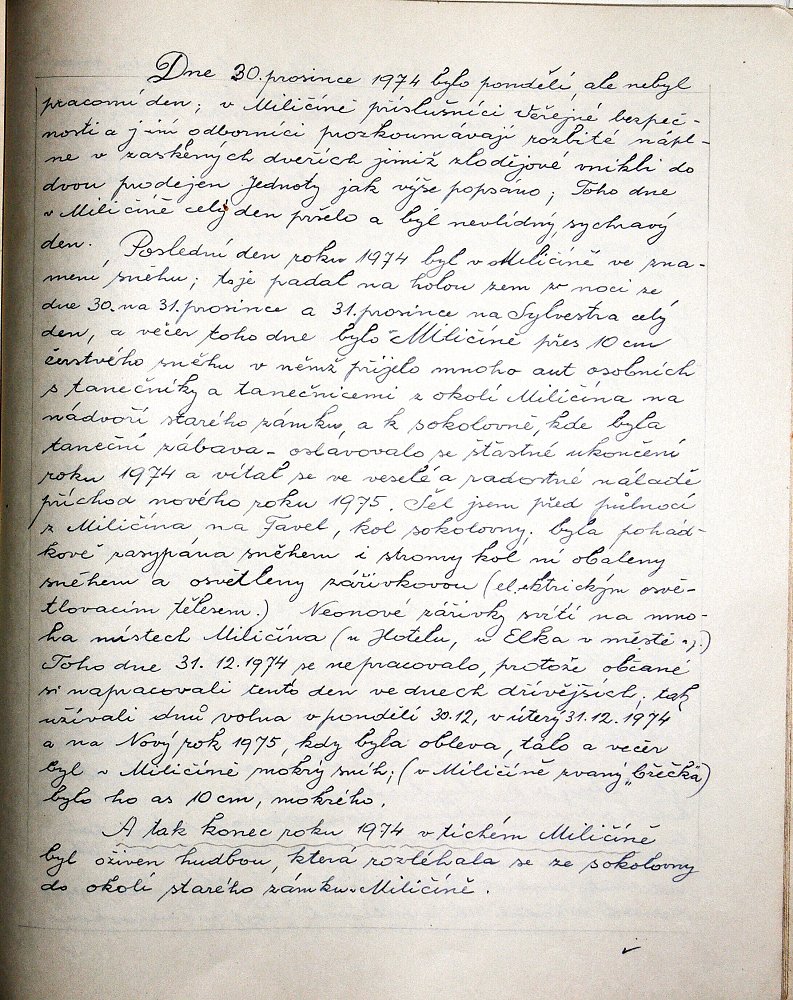 Dne 30. prosince 1974 bylo pondělí, ale nebyl
pracovní den; v Miličíně příslušníci Veřejné bezpeč-
nosti a jiní odborníci prozkoumávají rozbité nápl-
ně v zasklených dveřích jimiž zlodějové vnikli do
dvou prodejen Jednoty jak výše popsáno; Toho dne
v Miličíně celý den pršelo a byl nevlídný, sychravý
den.
Poslední den roku 1974 byl v Miličíně ve zna-
mení sněhu; to je padal na holou zem v noci ze
dne 30. na 31. prosince a 31. prosince na Sylvestra celý
den, a večer toho dne bylo v Miličíně přes 10 cm
čerstvého sněhu v němž přijelo mnoho aut osobních
s tanečníky a tanečnicemi z okolí Miličína na
nádvoří starého zámku, a k sokolovně, kde byla
taneční zábava - oslavovalo se šťastné ukončení
roku 1974 a vítal se ve veselé a radostné náladě
příchod nového roku 1975. Šel jsem před půlnocí
z Miličína na Favel, kol sokolovny; byla pohád-
kově zasypána sněhem i stromy kol ní obaleny
sněhem a osvětleny zářivkovou (elektrickým osvě-
tlovacím tělesem.) Neonové zářivky svítí na mno-
ha místech Miličína (u Hotelu, u Elka v městě aj.)
Toho dne 31. 12. 1974 se nepracovalo, protože občané
si napracovali tento den ve dnech dřívějších; tak
užívali dnů volna v pondělí 30.12, v úterý 31.12. 1974
a na Nový rok 1975, kdy byla obleva, tálo a večer
byl v Miličíně mokrý sníh; (v Miličíně zvaný „břečka")
bylo ho as 10 cm, mokrého.
A tak konec roku 1974 v tichém Miličíně
byl oživen hudbou, která rozléhala se ze sokolovny
do okolí starého zámku v Miličíně.